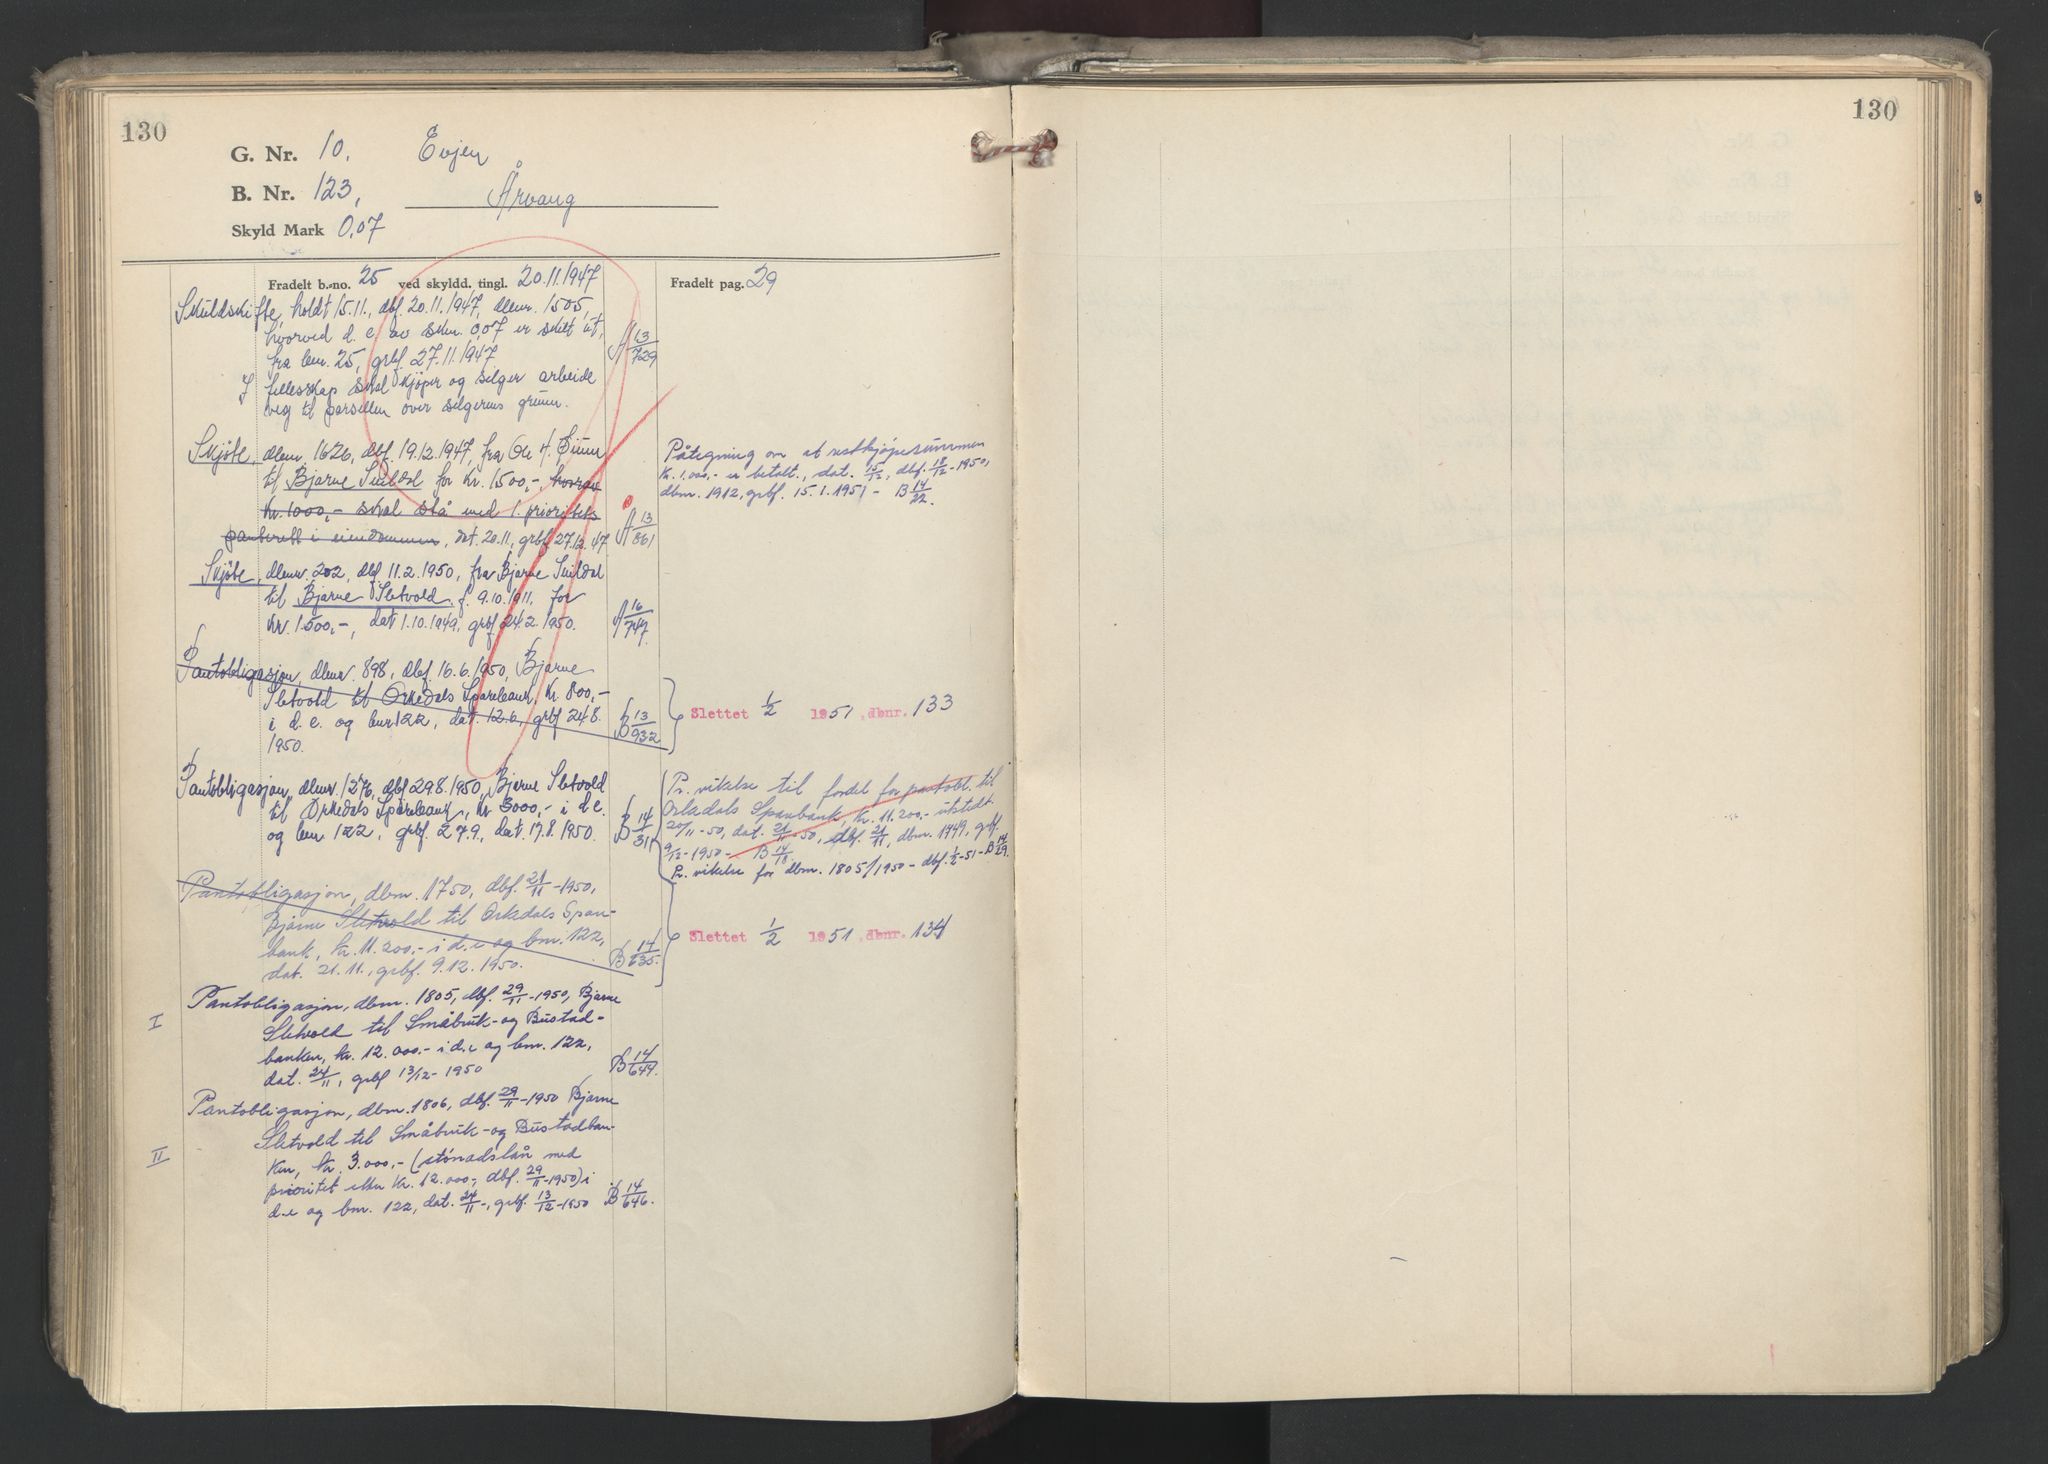 130
G. Nr. 10, Evjen
B. Nr. 123, Årvang
Skyld Mark 0,07
Fradelt b.-no. 25 ved skyldd. tingl. 20.11.1947 Fradelt pag. 29
Skuldskifte, holdt 15.11., dbf. 20.11.1947, dbnr. 1505,
hvorved d. e. av skm. 0,07 er skilt ut
fra bnr. 25, grbf. 27.11.1947 A 13/729
I fellesskap skal kjøper og selger arbeide
veg til parsellen over selgerens grunn.
Skjøte, dbnr. 1626, dbf. 19.12.1947, fra Ole H.
til Bjarne Suildal for kr. 1500,- hvorav
kr. 1000,- skal stå med 1. prioritets
panterett i eiendommen, dat. 20.11, grbf. 27.12.47 A 13/861
Påtegning om at restkjøpesummen
kr. 1.000,- er betalt, dat. 15/12, dbf. 18/12-1950,
dbnr. 1912, grbf. 15.1.1951 - B 14/22.
Skjøte, dbnr. 202, dbf. 11.2.1950, fra Bjarne Suildal
til Bjarne Sletvold, f. 9.10.1911, for
kr. 1500,-, dat 1.10.1949, grbf 24.2.1950. A 16/747.
Pantobligasjon, dbnr. 898, dbf. 16.6.1950, Bjarne
Sletvold til Orkedals Sparebank, kr. 800,-
i d. e. og bnr 122, dat. 12.6, grbf 24.8. B 13/932
1950.
Slettet 1/2 1951, dbnr. 133
Pantobligasjon, dbnr. 1276, dbf 29.8.1950, Bjarne Sletvold
til Orkedals Sparebank, kr 3000,- i d. e.
og bnr 122, grbf. 27.9., dat. 17.8.1950. B 14/311
Pr. vikelse til fordel for pantobl. til
Orkdals Sparebank, kr. 11.200,- utstedt
20/11-50, dat. 21/11-50, dbf. 21/11, dbnr. 1749, grbf.
9/12-1950 - B 14/18.
Pr. vikelse for dbnr. 1805/1950 - dbf. 1/2-51 - B 14/29.
Pantobligasjon, dbnr. 1750, dbf. 21/11-1950,
Bjarne Sletvold til Orkdals Spare-
bank, kr. 11.200.- i d. e og bnr. 122,
dat. 21.11., grbf. 9.12.1950. B 14/635.
Slettet 1/2 1951, dbnr. 134
I Pantobligasjon, dbnr. 1805, dbf. 29/11-1950, Bjarne
Sletvold til Småbruk- og Bustad-
banken, kr. 12.000.- i d. e og bnr. 122,
dat. 24/11, grbf 13/12-1950 B 14/644.
Pantobligasjon, dbnr. 1806, dbf. 29/11-1950 Bjarne
Sletvold til Småbruk- og Bustadban-
II ken, kr. 3.000,- (stønadslån med
prioritet etter kr. 12.000,-, dbf. 29/11-1950) i
d. e og bnr. 122, dat. 24/11-, grbf. 13/12-1950 B 14/646.
130